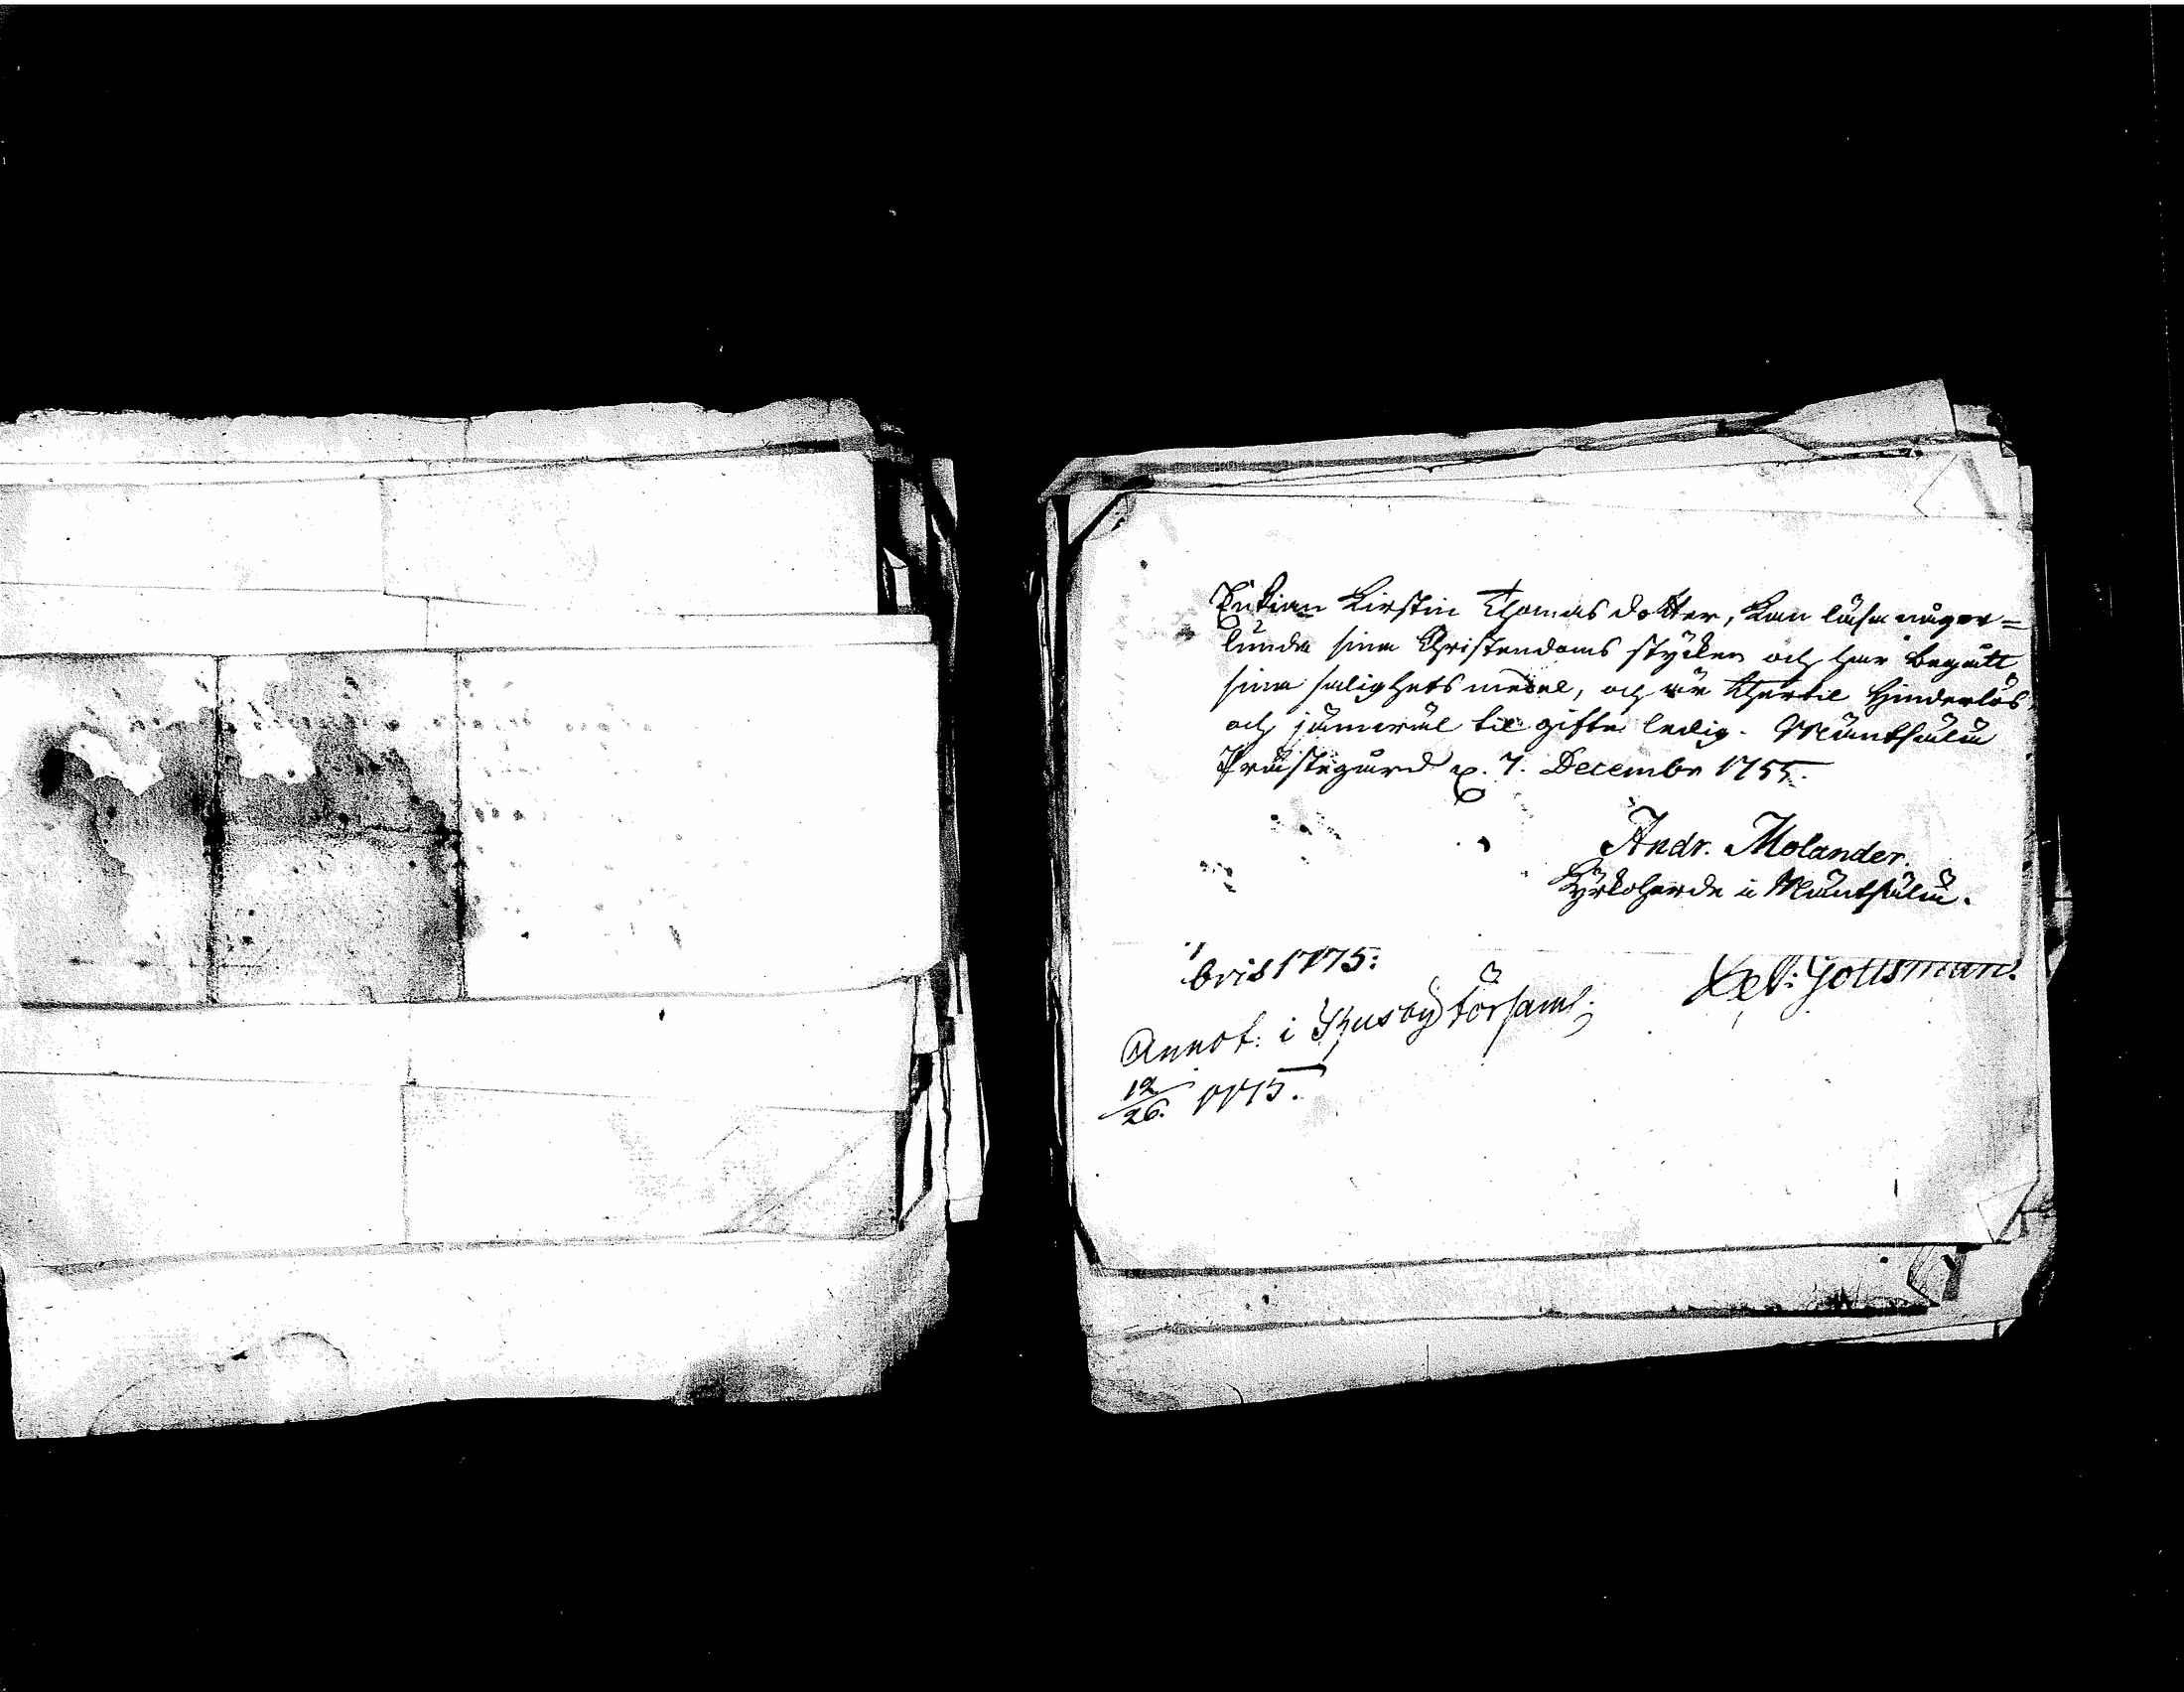 Pigan Kirstin Thomas dotter, kan läsa någor=
lunda sina Christendoms stycken och har begått
sina salighets medel, och är thertil hinderlös
och jämwäl til gifte ledig. Mäntsälä
Prästegård d. 7. Decembr 1755.
Andr. Molander.
Kyrkoherde i Mäntsälä.
bris 1775:
Gottsman.
Annot: i Husby Församl:
12/26. 1775.